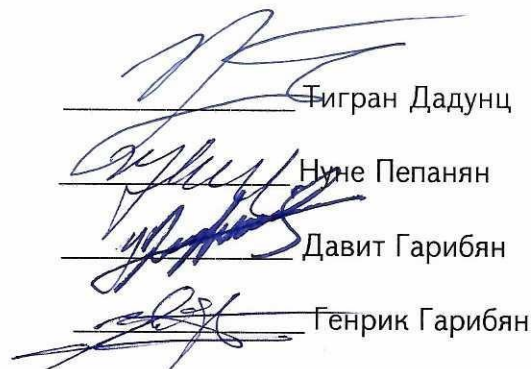 Тигран Дадунц
Нуне Пепанян
Давит Гарибян
Генрик Гарибян